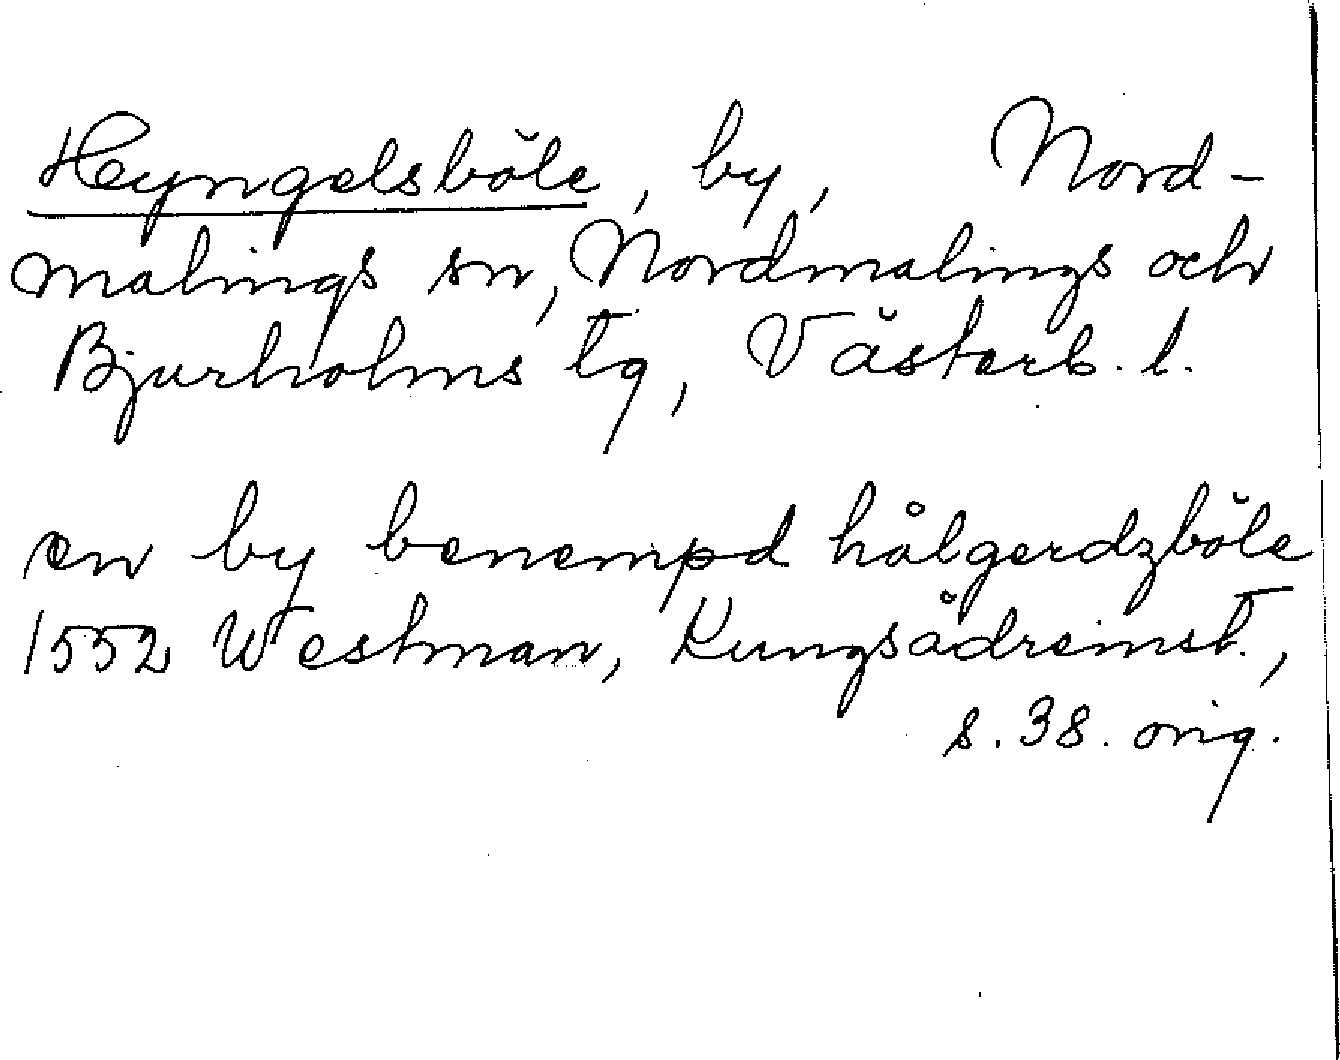 Heyngelsböle, by, Nord-
malings sn, Nordmalings och
Bjurholms tg, Västerb. l.
en by benempd hålgerdzböle
1552 Westman, Kungsådreinst.,
s. 38. orig.